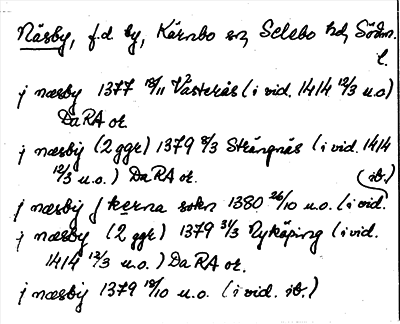 Näsby, f.d by, Kärnbo sn, Selebo hd, Södm. l.
j næsby 1377 18/11 Västerås (i vid. 1414 12/3 u.o)
DaRA or.
j næsby (2 ggr) 1379 8/3 Strängnäs (i vid. 1414
12/3 u.o.) DaRA or. (ib.)
j næsby j kerna sokn 1380 26/10 u.o. (i vid.
j næsby (2 ggr) 1379 31/3 Nyköping (i vid.
1414 12/3 u.o.) DaRA or.
j næsby 1379 18/10 u.o. (i vid. ib.)